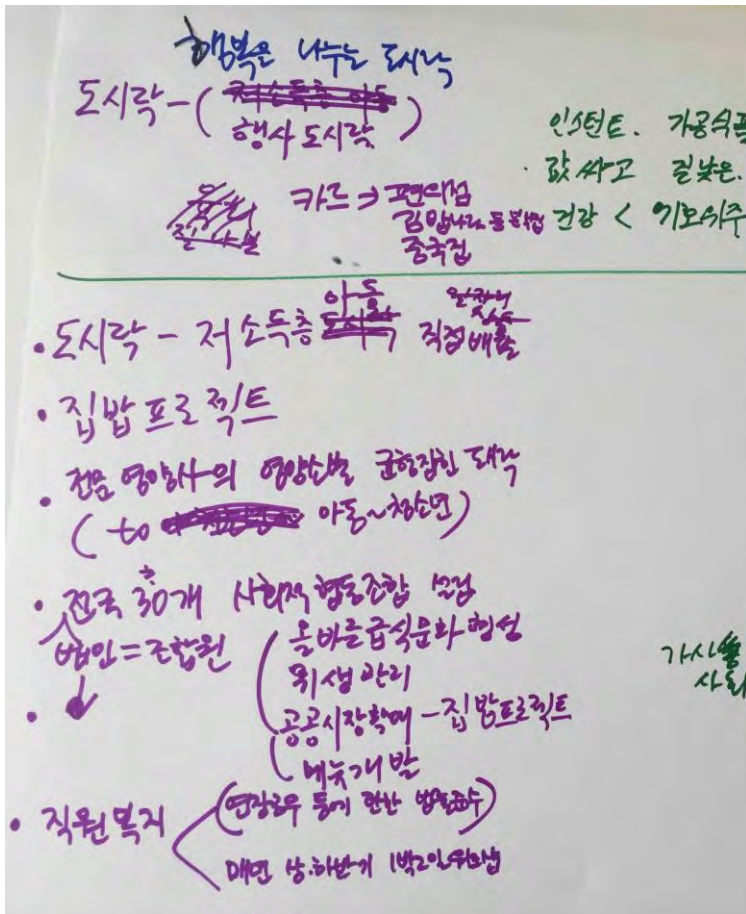 행복을 나누는 도시락
도시락 - (저소득층 아동
행사 도시락)
인스턴트. 가공식품
· 값싸고 질낮은.
카드 → 편의점
김밥나라 등 분식점
건강 < 기호위주
중국집
• 도시락 - 저소득층 아동 도시락 직접배송
• 집밥 프로젝트
• 전문 영양사의 영양소별 균형잡힌 도시락
(to 아동~청소년)
• 전국 30개 사회적협동조합 설립
법인 = 조합원
올바른급식문화 형성
위생관리
공공시장확대 - 집밥프로젝트
메뉴개발
• 직원복지
(연장근무 등에 관한 법률준수)
매년 상.하반기 1박2일 워크샵